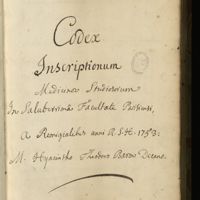 Codex
Inscriptionum
Medicinæ Studiosorum
In Saluberrimâ Facultate Parisiensi,
A Remigialibus anni R.S.H. 1753.
M. Hyacintho Theodoro Baron Decano.